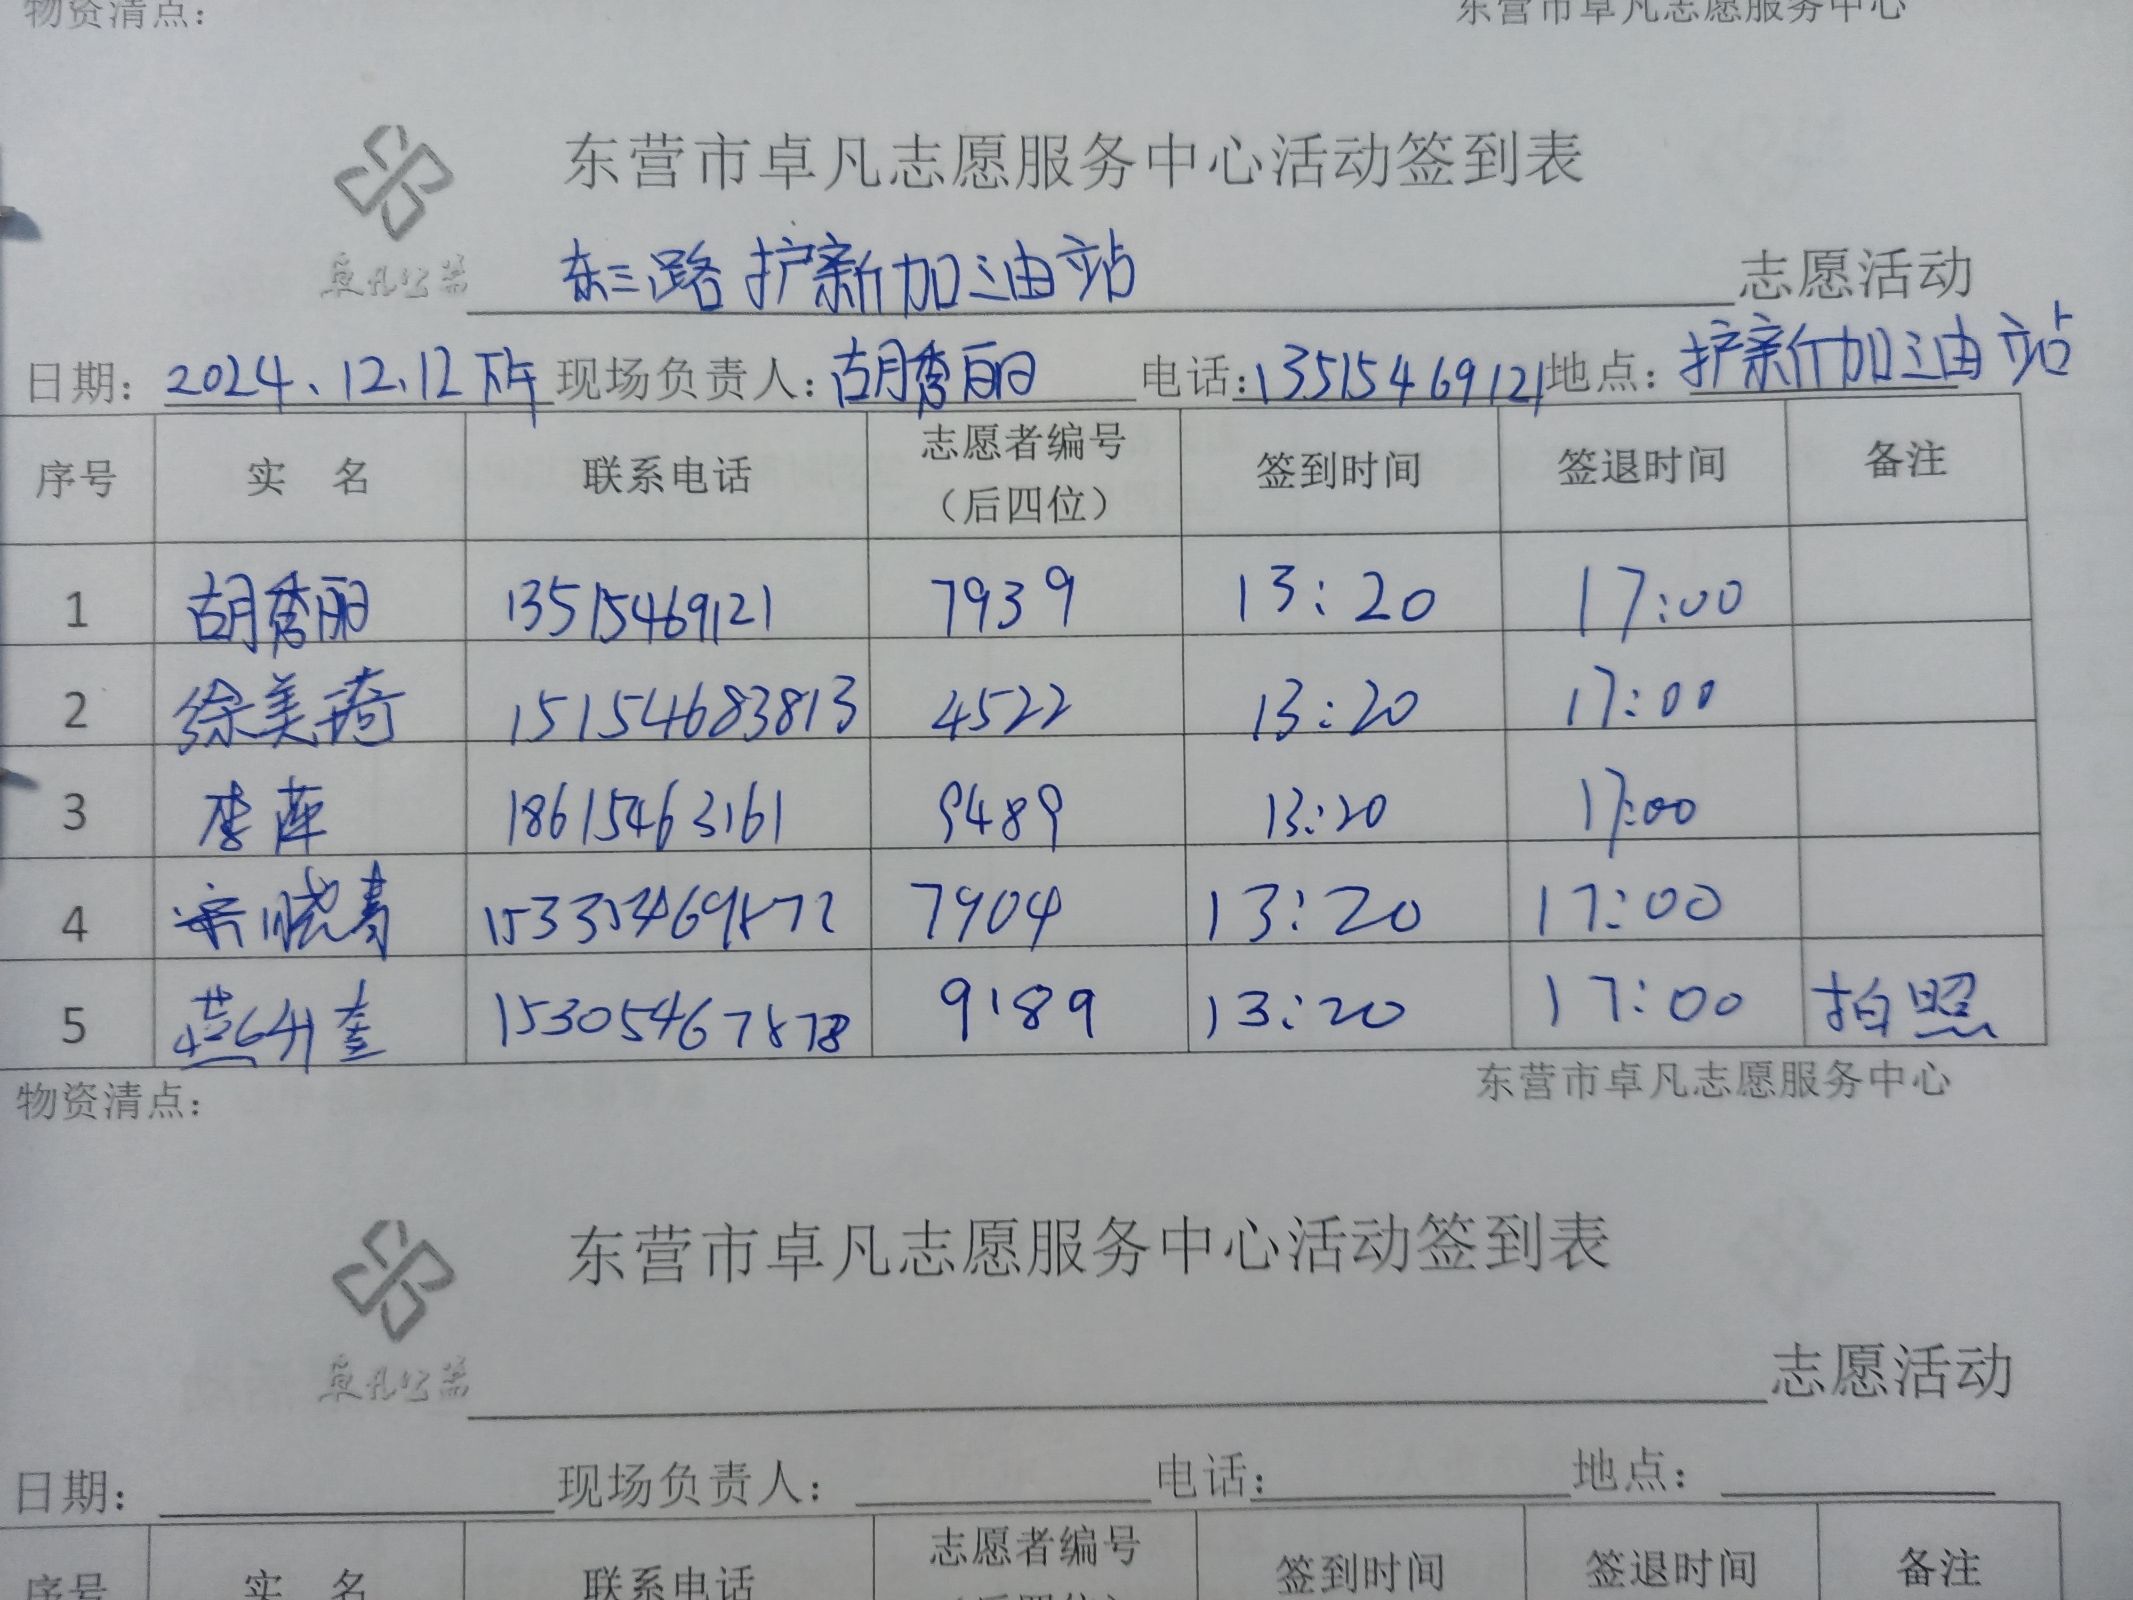 物资清点：
东营市卓凡志愿服务中心
东营市卓凡志愿服务中心活动签到表
卓凡公益 东三路护新加油站 志愿活动
日期：2024.12.12下午 现场负责人：胡秀丽 电话：13515469121 地点：护新加油站
序号 实 名 联系电话 志愿者编号（后四位） 签到时间 签退时间 备注
1 胡秀丽 13515469121 7939 13:20 17:00
2 徐美琦 15154683813 4522 13:20 17:00
3 李萍 18615463161 9489 13:20 17:00
4 晓青 7904 13:20 17:00
5 15305467878 9189 13:20 17:00 拍照
物资清点：
东营市卓凡志愿服务中心
东营市卓凡志愿服务中心活动签到表
卓凡公益 志愿活动
日期： 现场负责人： 电话： 地点：
序号 实 名 联系电话 志愿者编号 签到时间 签退时间 备注